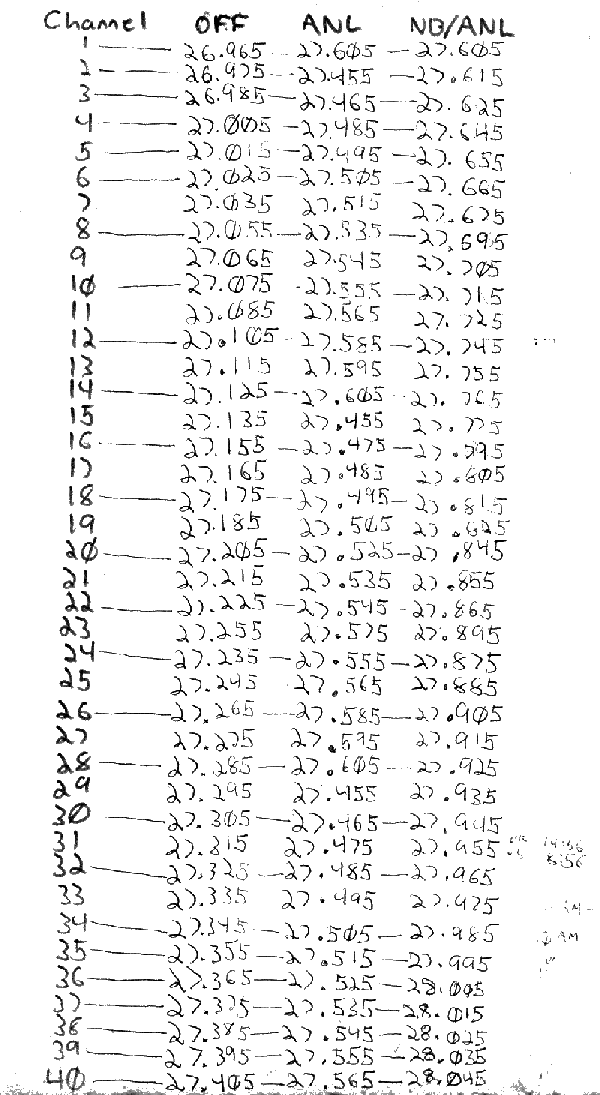 Channel OFF ANL NB/ANL
1 26.965 27.605 27.605
2 26.975 27.455 27.615
3 26.985 27.465 27.625
4 27.005 27.485 27.645
5 27.015 27.495 27.655
6 27.025 27.505 27.665
7 27.035 27.515 27.675
8 27.055 27.535 27.695
9 27.065 27.545 27.705
10 27.075 27.555 27.715
11 27.085 27.565 27.725
12 27.105 27.585 27.745
13 27.115 27.595 27.755
14 27.125 27.605 27.765
15 27.135 27.455 27.775
16 27.155 27.475 27.795
17 27.165 27.485 27.805
18 27.175 27.495 27.815
19 27.185 27.505 27.825
20 27.205 27.525 27.845
21 27.215 27.535 27.855
22 27.225 27.545 27.865
23 27.255 27.575 27.895
24 27.235 27.555 27.875
25 27.245 27.565 27.885
26 27.265 27.585 27.905
27 27.275 27.595 27.915
28 27.285 27.605 27.925
29 27.295 27.455 27.935
30 27.305 27.465 27.945
31 27.315 27.475 27.955
32 27.325 27.485 27.965
33 27.335 27.495 27.975
34 27.345 27.505 27.985
35 27.355 27.515 27.995
36 27.365 27.525 28.005
37 27.375 27.535 28.015
38 27.385 27.545 28.025
39 27.395 27.555 28.035
40 27.405 27.565 28.045